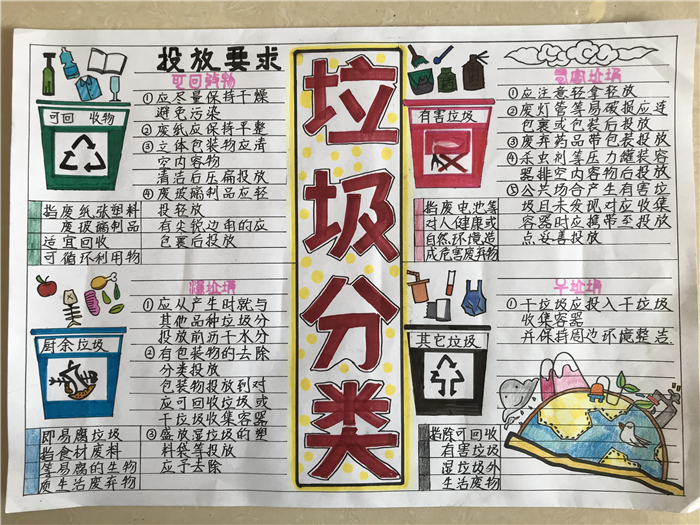 投放要求
可回收物
可回 收物
①应尽量保持干燥
避免污染
②废纸应保持平整
③立体包装物应清
空内容物
清洁后压扁投放
④废玻璃制品应轻
投轻放
有尖锐边角的应
包裹后投放
指废纸张塑料
废玻璃制品
适宜回收
可循环利用物
湿垃圾
厨余垃圾
①应从产生时就与
其他品种垃圾分
投放前沥干水分
②有包装物的去除
分类投放
包装物投放到对
应可回收垃圾或
干垃圾收集容器
③盛放湿垃圾的塑
料袋等投放
应予去除
即易腐垃圾
指食材废料
等易腐的生物
质生活废弃物
垃圾分类
有害垃圾
有害垃圾
①应注意轻拿轻放
②废灯管等易破损应连
包裹或包装后投放
③废弃药品带包装投放
④杀虫剂等压力罐装容
器排空内容物后投放
⑤公共场合产生有害垃
圾且未发现对应收集
容器时应携带至投放
点妥善投放
指废电池等
对人健康或
自然环境造
成危害废弃物
干垃圾
其它垃圾
①干垃圾应投入干垃圾
收集容器
并保持周边环境整洁
指除可回收
有害垃圾
湿垃圾外
生活废物